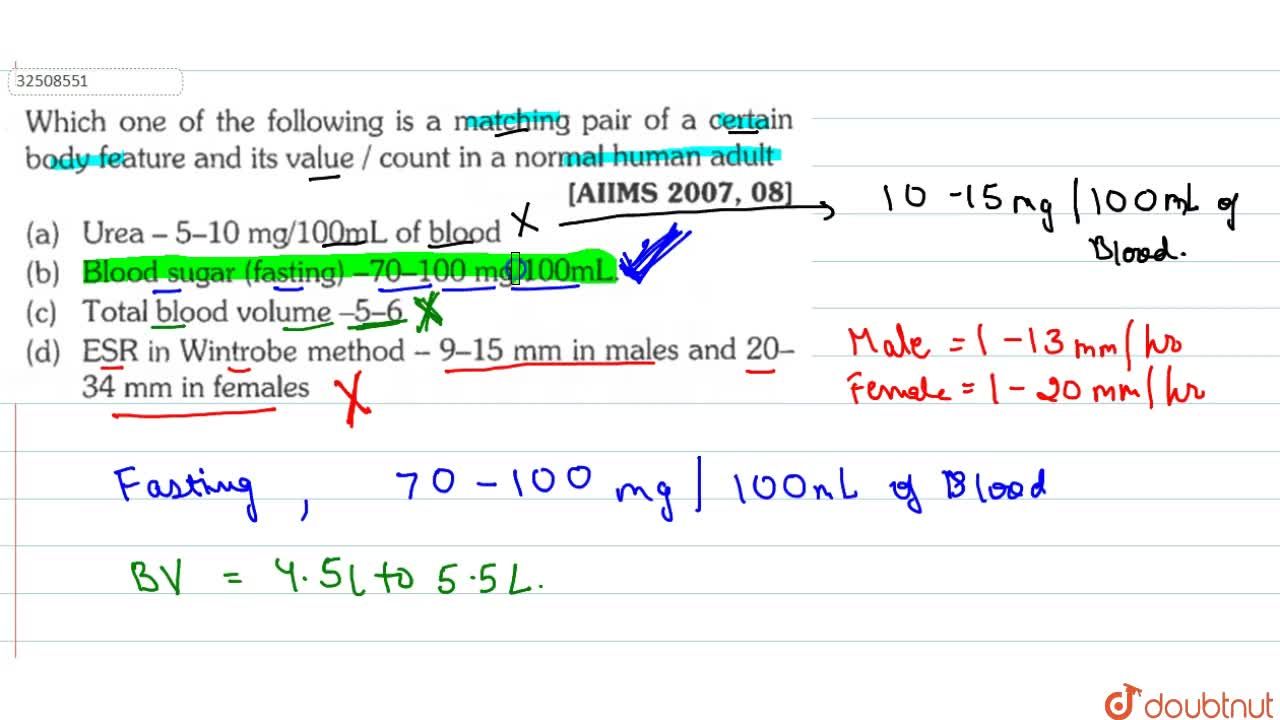 32508551
Which one of the following is a matching pair of a certain
body feature and its value / count in a normal human adult
[AIIMS 2007, 08]
(a) Urea – 5–10 mg/100mL of blood
(b) Blood sugar (fasting) –70–100 mg/100mL.
(c) Total blood volume –5–6
(d) ESR in Wintrobe method – 9–15 mm in males and 20–
34 mm in females
10 -15 mg / 100 mL of
Blood.
Male = 1 - 13 mm/hr
Female = 1 - 20 mm/hr
Fasting , 70 - 100 mg / 100mL of Blood
BV = 4.5L to 5.5L.
doubtnut